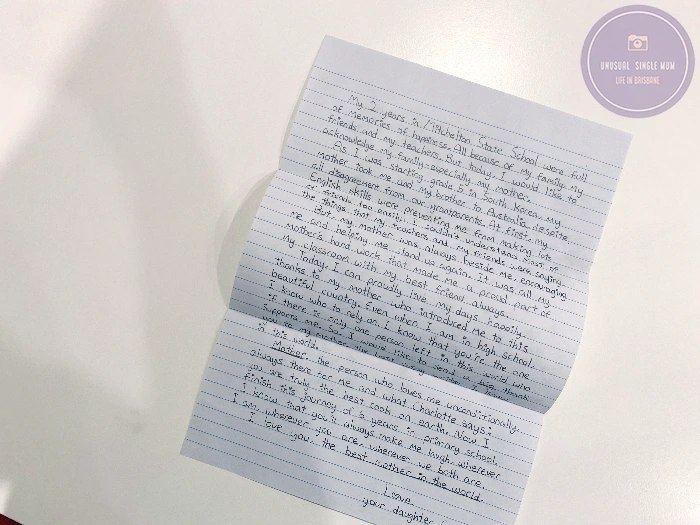 UNUSUAL SINGLE MUM
LIFE IN BRISBANE
My 2 years in Mitchelton State School were full
of memories of happiness. All because of my family, my
friends and my teachers. But today, I would like to
acknowledge my family especially my mother.
As I was starting grade 5 in South Korea, my
Mother took me and my brother to Australia despite
all disagreement from our grandparents. At first, my
English skills were preventing me from making lots
of friends too easily. I couldn't understand most of
the things that my teachers and my friends were saying.
But, my mother was always beside me, encouraging
me and helping me stand up again. It was all my
mother's hard work that made me a proud part of
my classroom with my best friend, always.
Today, I can proudly live my days happily
thanks to my mother who introduced me to this
beautiful country. Even when I am in high school,
I know who to rely on. I know that you're the one
if there is only one person left in this world who
supports me. So, I would like to send a big thank
you to my mother the best
in this world.
Mother, the person who loves me unconditionally,
always there for me and what Charlotte says:
you are truly the best cook on earth. Now I
finish this journey of 6 years in primary school,
I know that you'll always make me laugh, wherever
I am, wherever you are, wherever we both are.
I love you, the best mother in the world.
Love,
your daughter